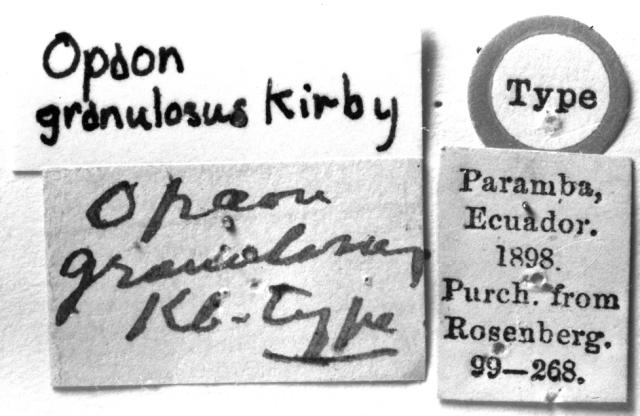 Opaon
granulosus Kirby
Opaon
granulosus
Kb-type
Type
Paramba,
Ecuador.
1898.
Purch. from
Rosenberg.
99—268.